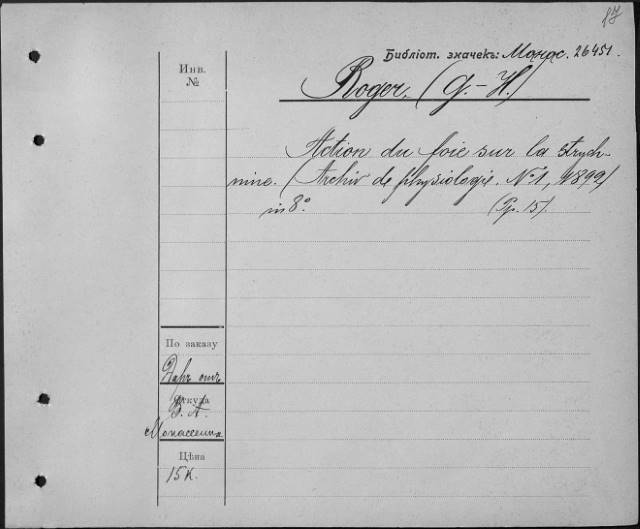 17
Библіот. значекъ: Монас. 26451.
Инв.
№
Roger. (G.-H.)
Action du foie sur la strych-
nine. (Archiv de physiologie. №1, 1892)
in 8°. (Pp. 15).
По заказу
Даръ отъ
Откуда
В. А.
Монассеина
Цѣна
15 к.